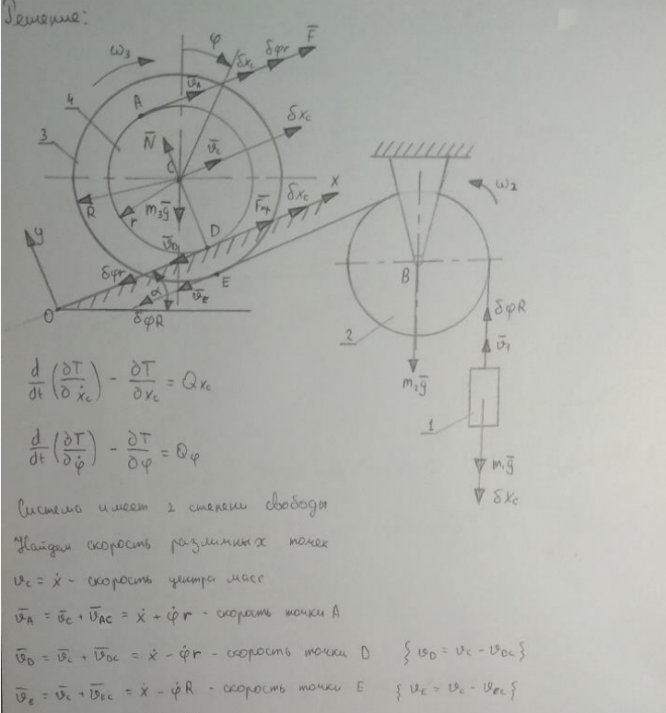 Решение:
ω₃
φ
δxc
δφr
F̅
4
A
v̅A
3
N̅
C
v̅c
δxc
R
r
m₃g̅
F̅тр
δxc
x
ω₂
y
D
v̅D
δφr
α
v̅E
E
O
δφR
B
2
m₂g̅
δφR
v̅₁
1
m₁g̅
δxc
d/dt (∂T/∂ẋc) - ∂T/∂xc = Qxc
d/dt (∂T/∂φ̇) - ∂T/∂φ = Qφ
Система имеет 2 степени свободы
Найдем скорость различных точек
vc = ẋ - скорость центра масс
v̅A = v̅c + v̅AC = ẋ + φ̇r - скорость точки A
v̅D = v̅c + v̅DC = ẋ - φ̇r - скорость точки D { vD = vc - vDC }
v̅E = v̅c + v̅EC = ẋ - φ̇R - скорость точки E { vE = vc - vEC }